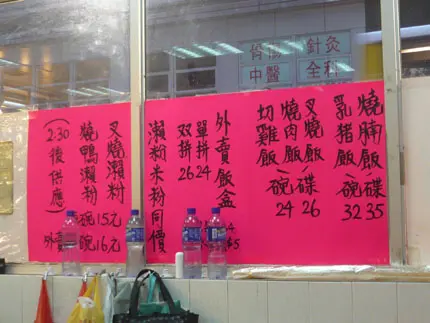 骨傷 針灸
中醫 全科
燒腩飯
乳猪飯
一碗 32
碟 35
叉燒飯
燒肉飯
切雞飯
一碗 24
碟 26
外賣飯盒
單拼 24
双拼 26
瀨粉米粉同價
叉燒瀨粉 碗15元
燒鴨瀨粉 碗16元
(2:30後供應)
外賣